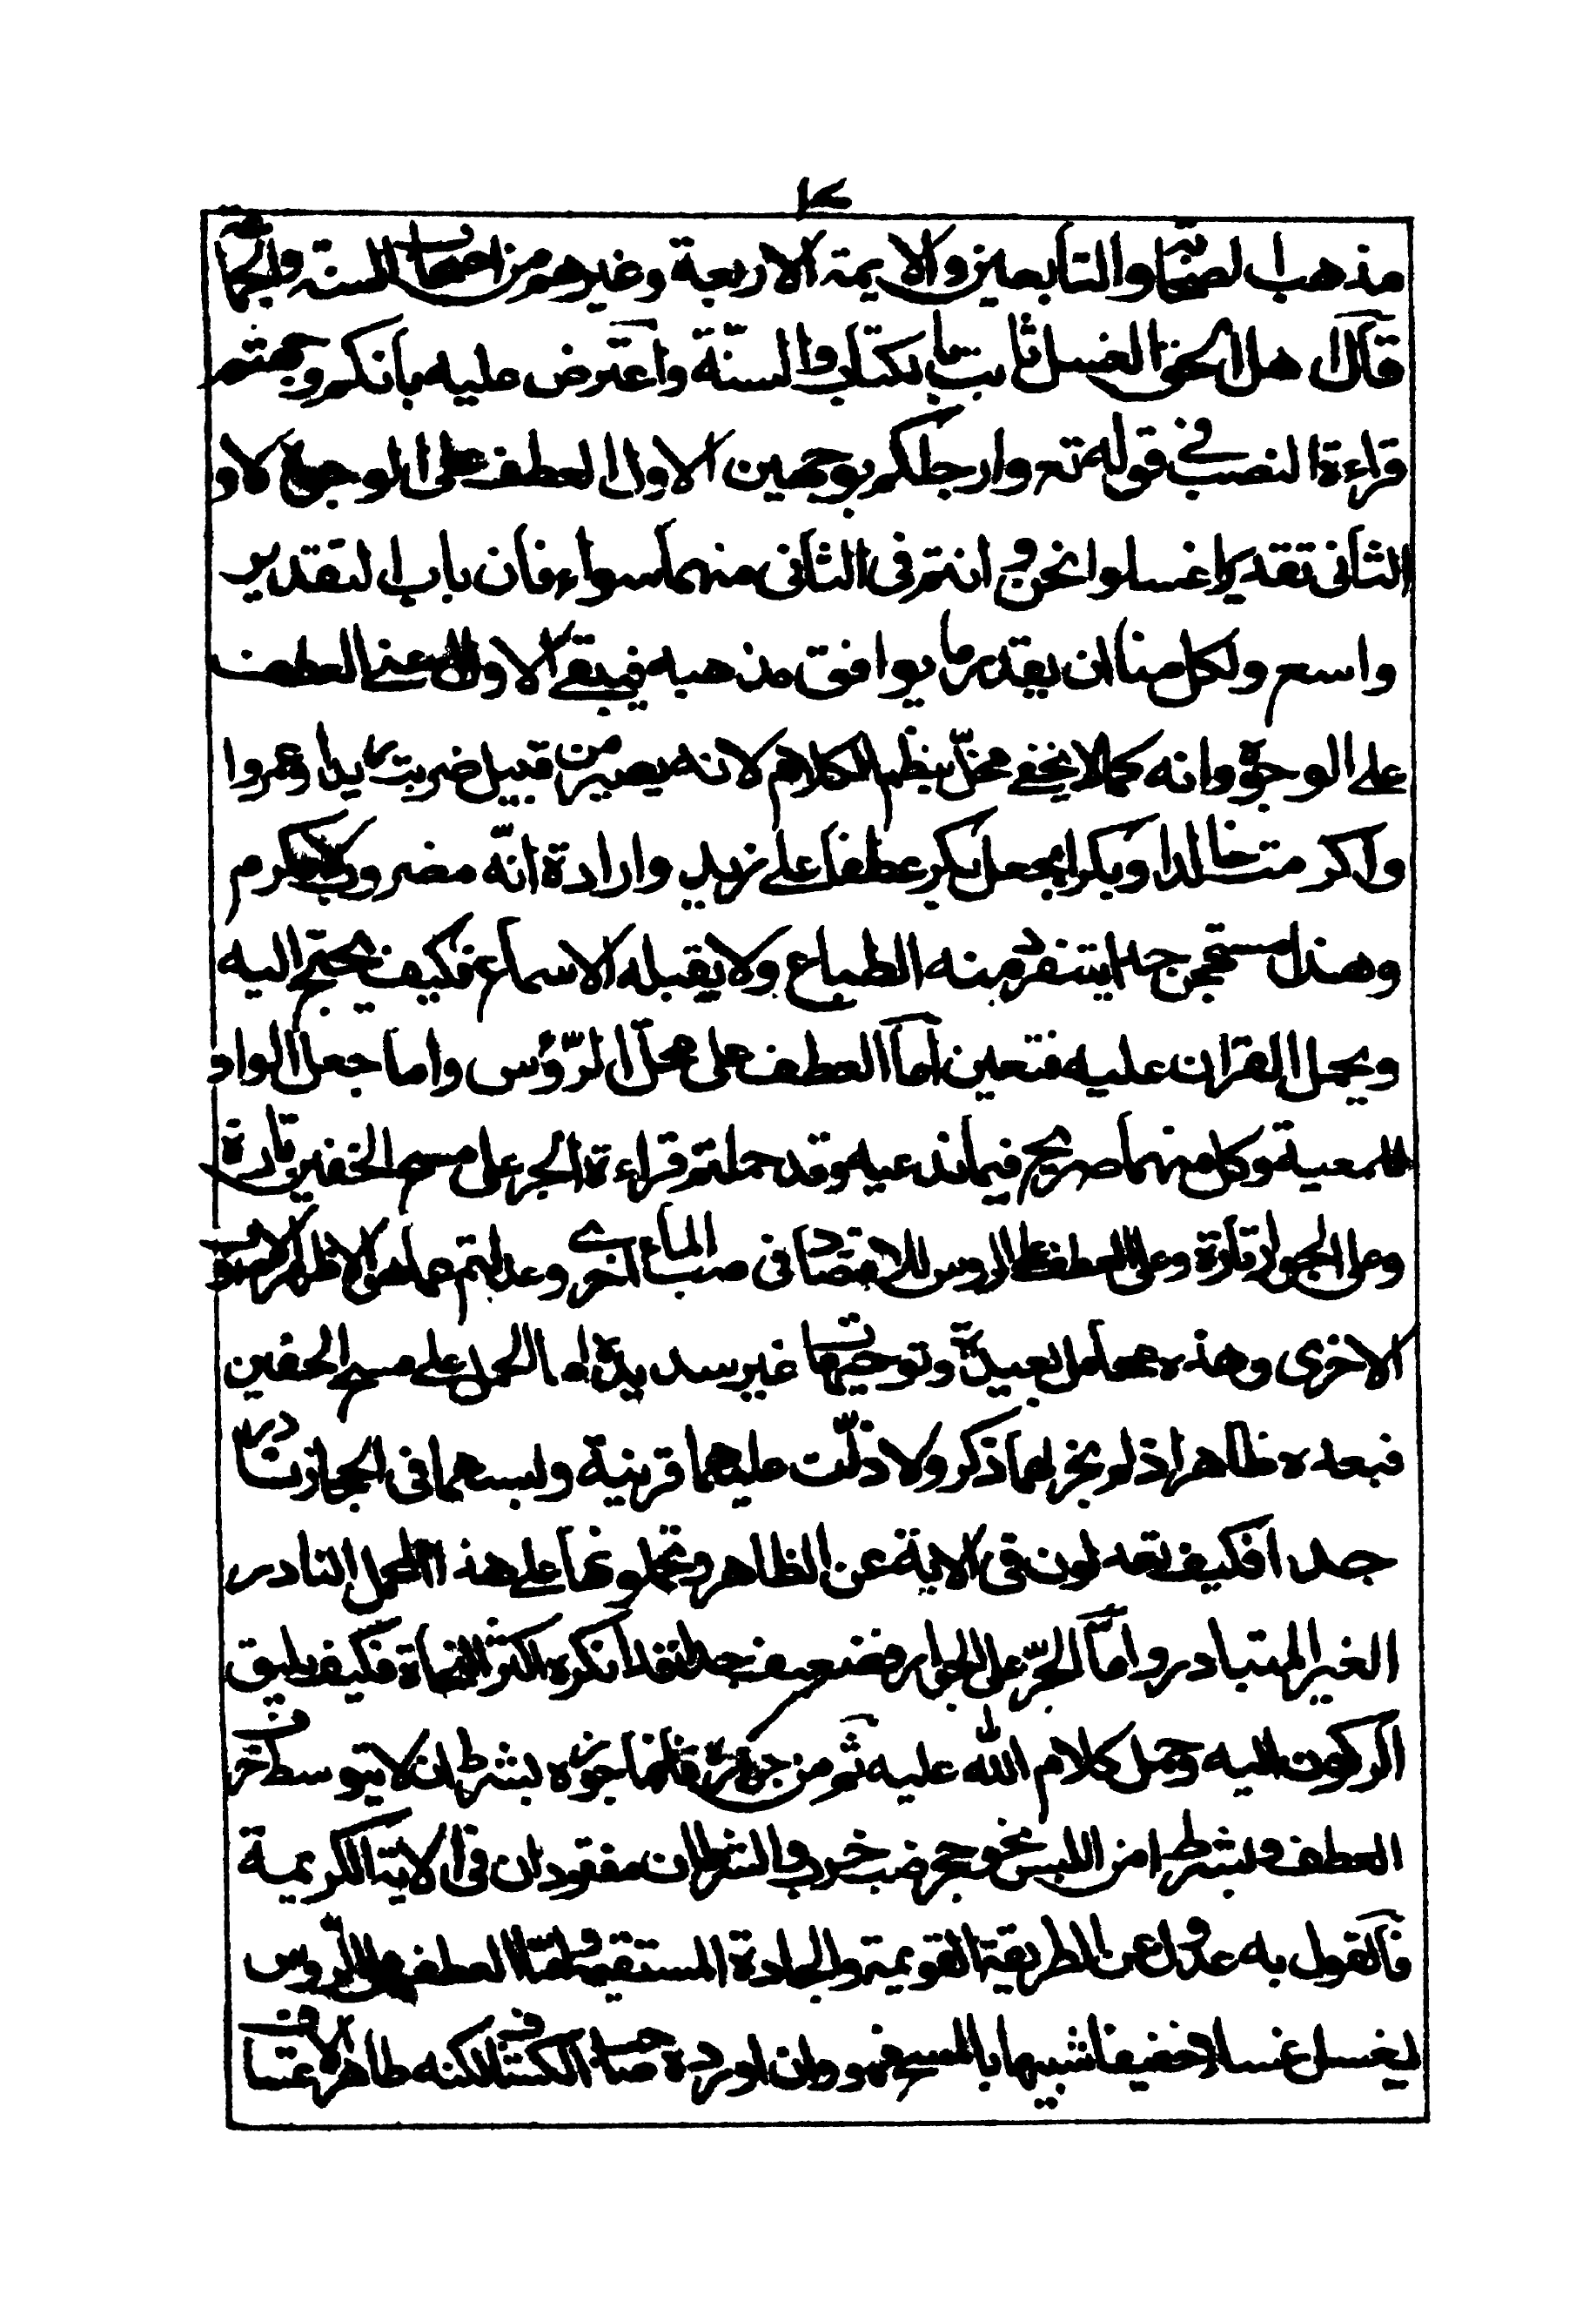 مذهب الصحابة والتابعين والايمة الاربعة وغيرهم من اصحاب السنة والجماعة
قال اهل الحق الغسل ثابت بالكتاب والسنة واعترض عليه بانكم وجهتم
قراءة النصب في قوله تع وارجلكم بوجهين الاول العطف على الوجوه لاو
الثاني تقدير اغسلوا نحن وانتم في الثاني منهما سواء فان باب التقدير
واسع ولكل منا ان يقدر ما يوافق مذهبه فبقي الاول اعني العطف
على الوجوه وانه كما لا يخفى مخلّ بنظم الكلام لانه يصير من قبيل ضربت زيدا وعمروا
واكرمت خالدا وبكرا بجعل بكر عطفا على زيد وارادة انّه مضروب لا مكرم
وهذا مستهجن جدا ينتفر منه الطباع ولا يقبله الاسماع فكيف يحتج اليه
ويحمل القران عليه فتعين اما العطف على محل الرّؤس واما جعل الواو
للمعية وكل منهما صريح فيما ندعيه وقد حملتم قراءة الجر على مسح الخفين تارة
وعلى الجوار تارة وعلى العطف على الروس للاقتصاد في صب الماء اخرى وعدلتم عما هو الاظهر
الاخرى وهذه محامل بعيدة وتوجيهات غير سديدة اما الحمل على مسح الخفين
فبعده ظاهر اذ لم يجز لهما ذكر ولا دلّت عليهما قرينة ولبسهما في الحجاز نادر
جدا فكيف تعدلون في الاية عن الظاهر وتحملونها على هذا المحمل النادر
الغير المتبادر وامّا الجرّ على الجوار فضعيف جدا قد انكره اكثر النحاة فكيف يليق
الركون اليه وحمل كلام الله عليه ثم من جوزه فانما جوزه بشرط ان لا يتوسط حرف
العطف وبشرط امن اللبس نحو جحر ضب خرب والشرطان مفقودان في الاية الكريمة
فالقول به عدول عن الطريقة القويمة والجادة المستقيمة واما العطف على الروس
ليغسل غسلا خفيفا شبيها بالمسح فهو وان اورده صاحب الكشاف لكنه ظاهر الاعتساف